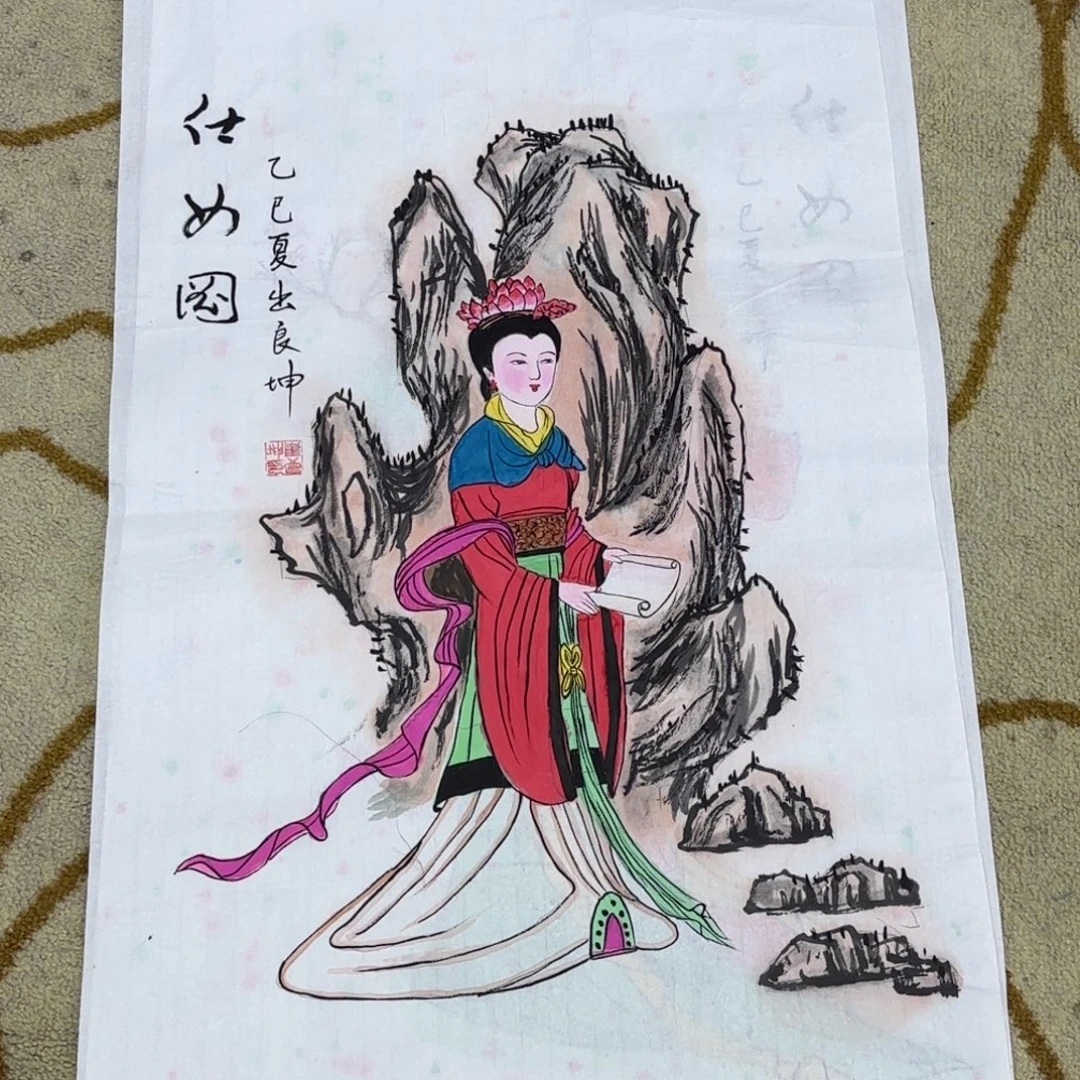 仕女图
乙巳夏出良坤